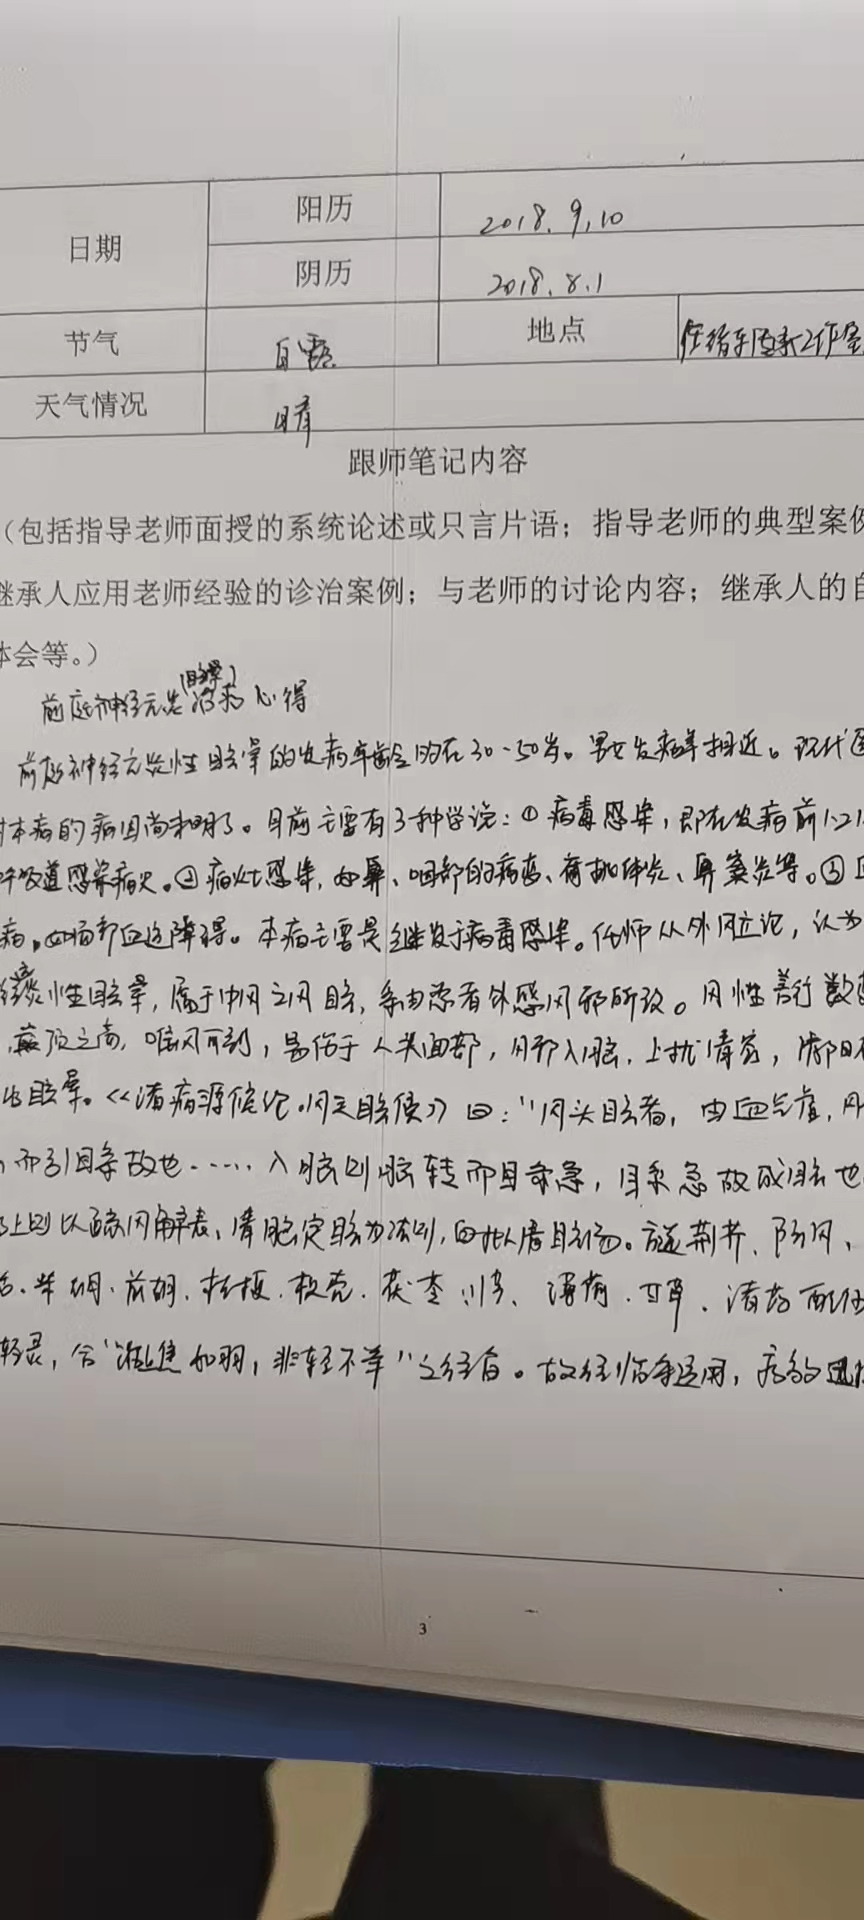 日期 阳历 2018.9.10
阴历 2018.8.1
节气 白露 地点 任 工作室
天气情况 晴
跟师笔记内容
（包括指导老师面授的系统论述或只言片语；指导老师的典型案例
继承人应用老师经验的诊治案例；与老师的讨论内容；继承人的自
体会等。）
(眩晕)
前庭神经元炎治疗心得
前庭神经元炎性眩晕的发病年龄约在30-50岁。男女发病率相近。现代医
对本病的病因尚未明了。目前主要有3种学说：①病毒感染，即在发病前1-2
呼吸道感染病史。②病灶感染，如鼻、咽部的病变、扁桃体炎、鼻窦炎等。③
病，如局部血运障碍。本病主要是继发于病毒感染。任师从外风立论，认为
性眩晕，属于中风之风眩，系由患者外感风邪所致。风性善行数变
，巅顶之高，唯风可到，易伤于人头面部，风邪入脑，上扰清窍，清阳
眩晕。《诸病源候论·风头眩候》曰："风头眩者，由血气虚，风
，而引目系故也……入脑则脑转而目系急，目系急故成眩也
上则以疏风解表，清脑定眩为法则，自拟 眩汤。方选荆芥、防风、
活、柴胡、前胡、桔梗、枳壳、茯苓、川芎、薄荷、甘草、诸药配伍
轻灵，合"治上焦如羽，非轻不举"之经旨。故经临床运用，疗效迅
3